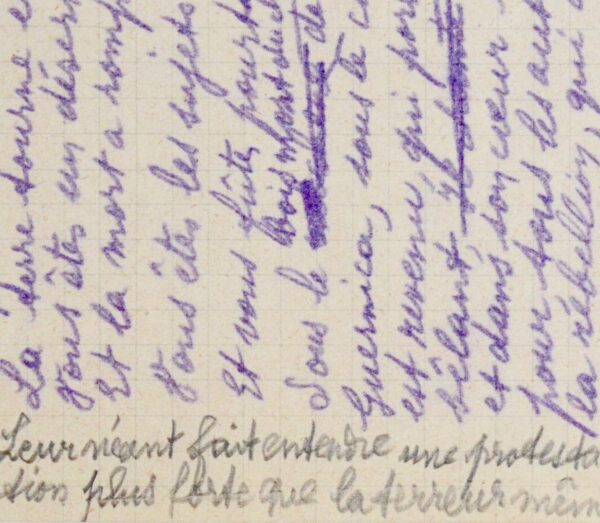 La terre tourne e
Vous êtes un déser
Et la mort a romp
Vous êtes les sujets
Et vous fûtes pourta
bois mort du ch
Sous le de
Guernica, sous le c
est revenu, qui por
bêlant,
et dans son cœur
pour tous les aut
la rébellion, qui
Leur néant fait entendre une protesta
tion plus forte que la terreur mêm